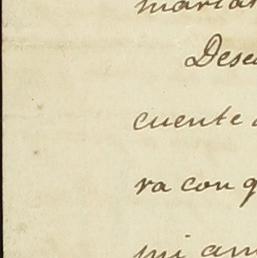 marian
Dese
cuente
ra con q
mi am